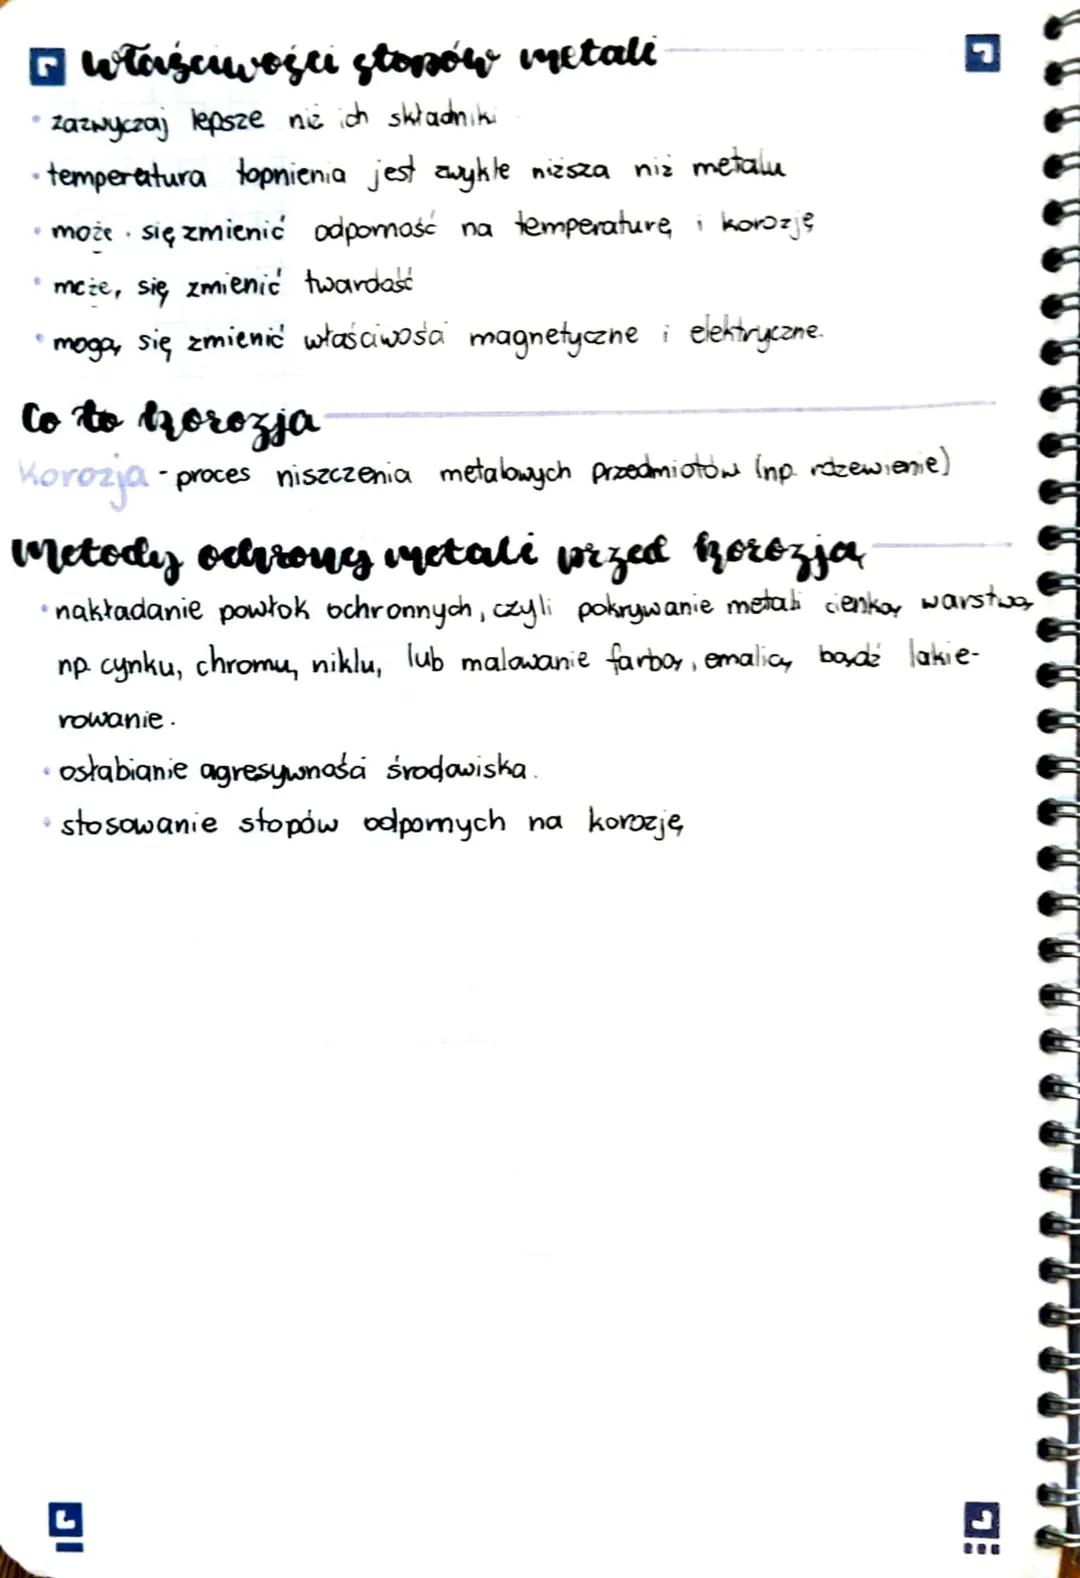 Właściwości stopów metali
• zazwyczaj lepsze niż ich składniki
• temperatura topnienia jest zwykle niższa niż metalu
• może się zmienić odporność na temperaturę i korozję
• może, się zmienić twardość
• mogą się zmienić właściwości magnetyczne i elektryczne.
Co to korozja
Korozja - proces niszczenia metalowych przedmiotów (np. rdzewienie)
Metody ochrony metali przed korozją
• nakładanie powłok ochronnych, czyli pokrywanie metali cienką warstwą
np. cynku, chromu, niklu, lub malowanie farbą, emalią, bądź lakie-
rowanie.
• osłabianie agresywności środowiska.
• stosowanie stopów odpornych na korozję